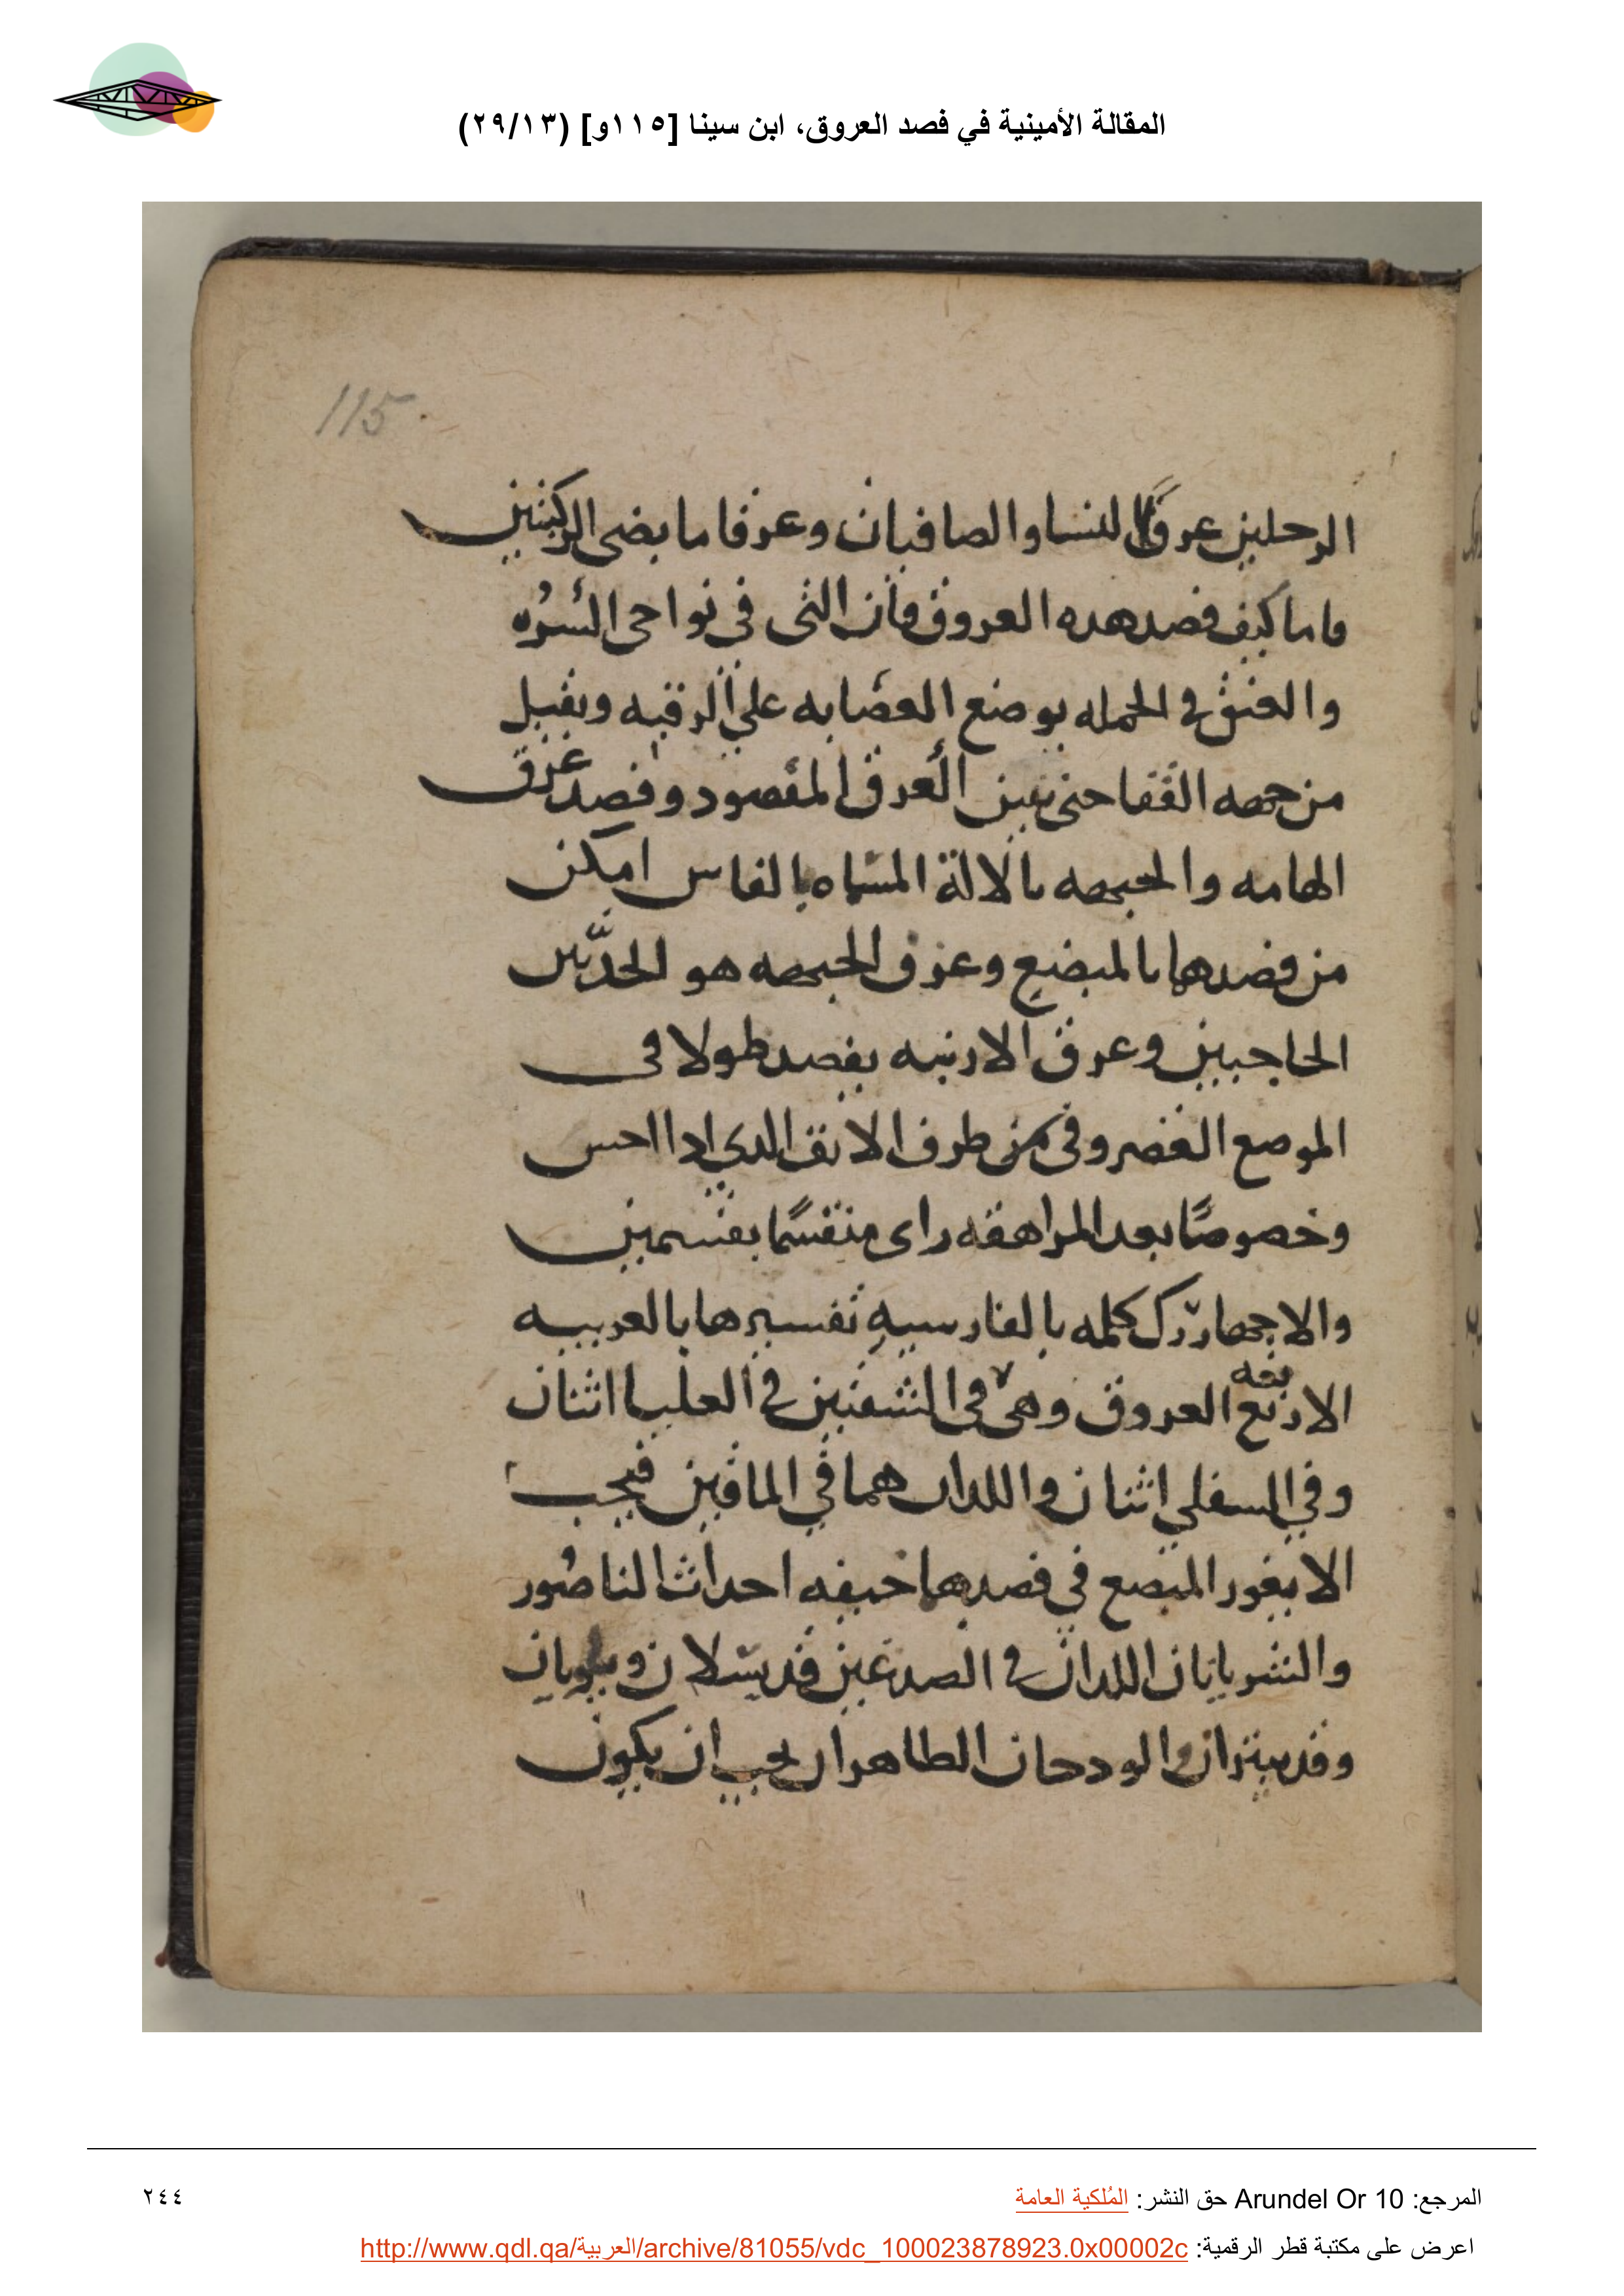 المقالة الأمينية في فصد العروق، ابن سينا [١١٥و] (٢٩/١٣)
115
الرحلين عرقا النسا والصافيان وعرفا مابضى الركبتين
فاما كيف فصد هده العروق فان التى فى نواحى السره
والعنق في الجمله بوضع العصابه على الرقبه ويقبل
من جهه القفا حتى تبين العرق المقصود وفصد عرق
الهامه والجبهه بالالة المسماه بالفاس امكن
من فصدهما بالمبضع وعرق الجبهه هو الحد بين
الحاجبين وعرق الارنبه يفصد طولا فى
الموضع الغضروفى من طرف الانف الدي ادا احس
وخصوصًا بعد المراهقه راى منقسمًا بقسمين
والاجهاررك كلمه بالفارسيه تفسيرها بالعربيه
الاربعه العروق وهى فى الشفتين في العليا اثنان
وفي السفلي اثنان واللدان هما في الماقين فيجب
الا يغور المبضع في فصدهما خيفه احداث الناصُور
والشريانان اللدان في الصدغين قد يسلان ويكويان
وقد يبتران والودحان الطاهران يجب ان يكون
المرجع: Arundel Or 10 حق النشر: المُلكية العامة
٢٤٤
اعرض على مكتبة قطر الرقمية: http://www.qdl.qa/العربية/archive/81055/vdc_100023878923.0x00002c